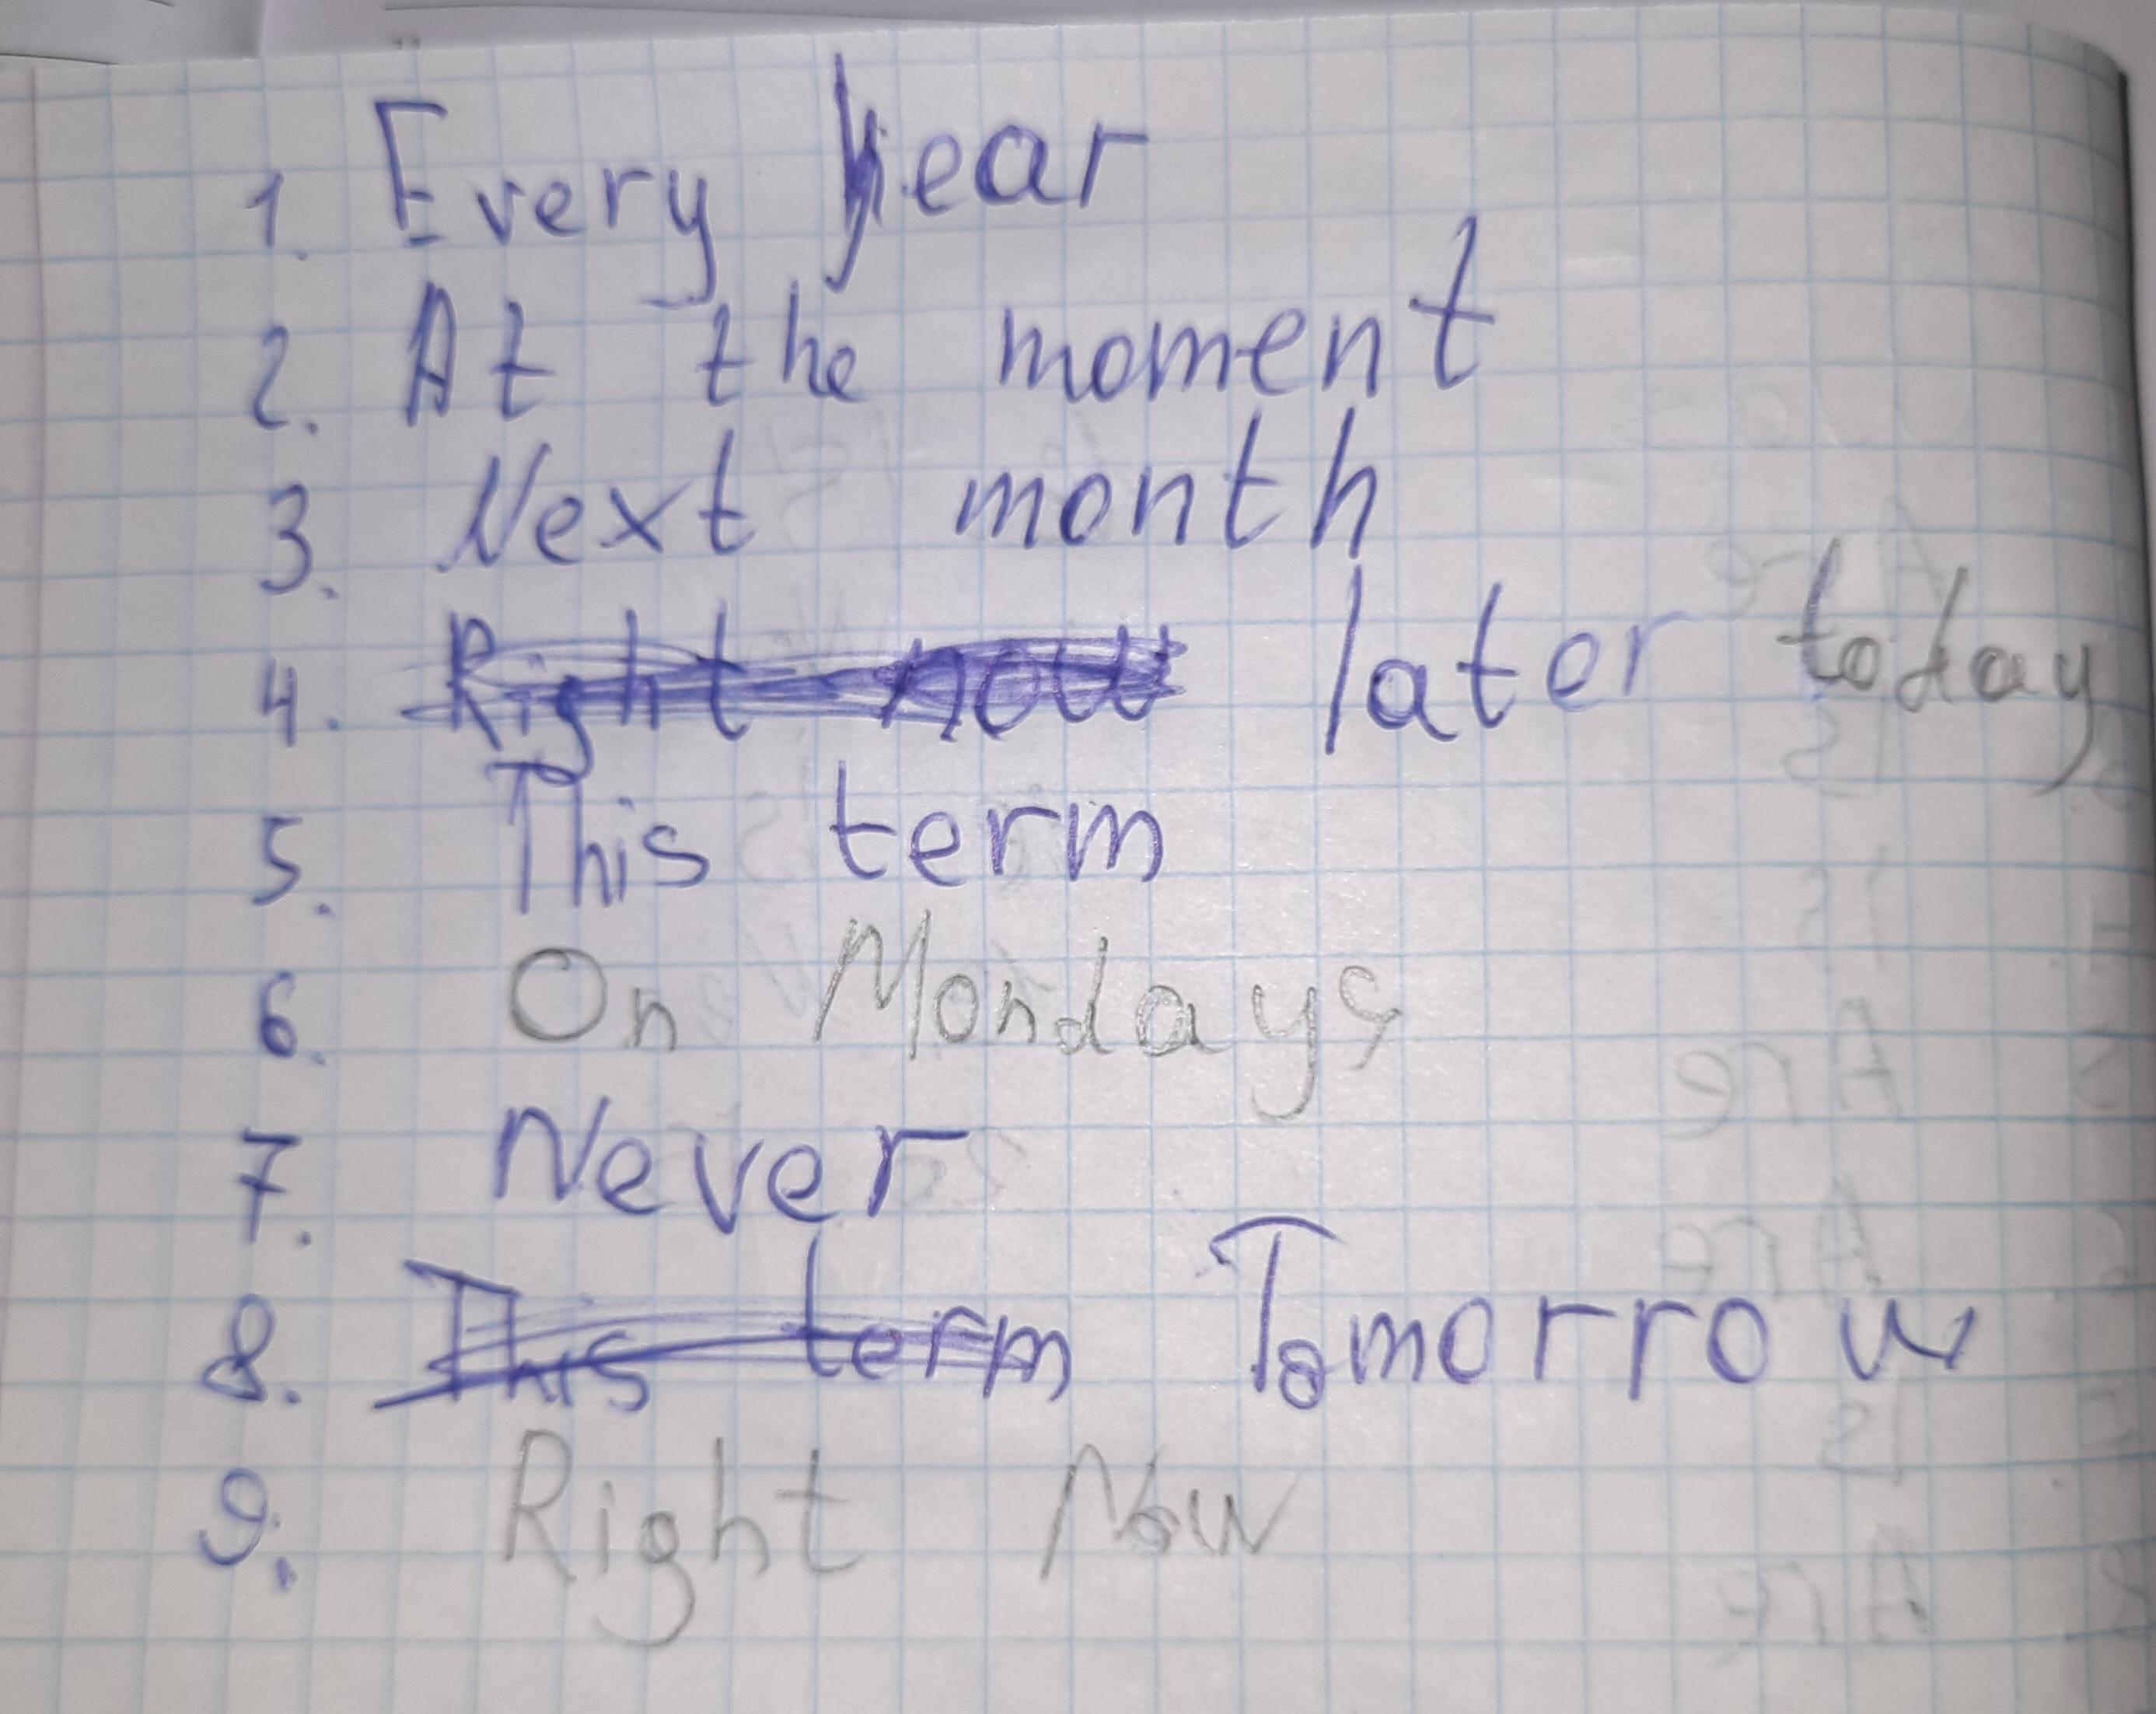 1. Every year
2. At the moment
3. Next month
4. Right now later today
5. This term
6. On Mondays
7. Never
8. This term Tomorrow
9. Right Now